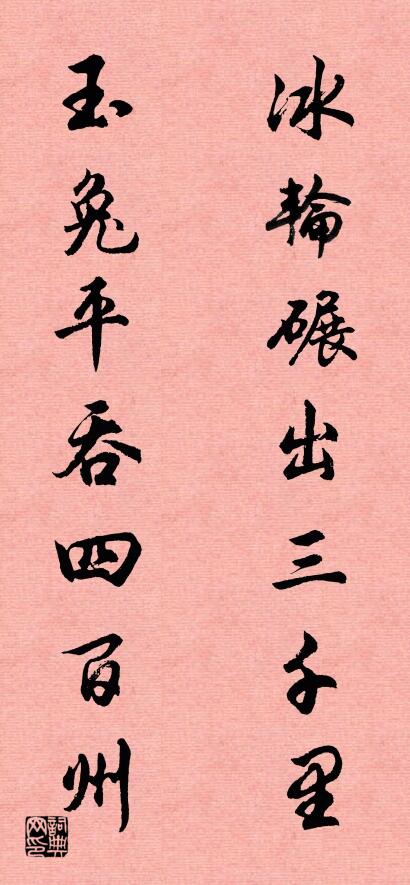 冰輪碾出三千里
玉兔平吞四百州
詞典網印